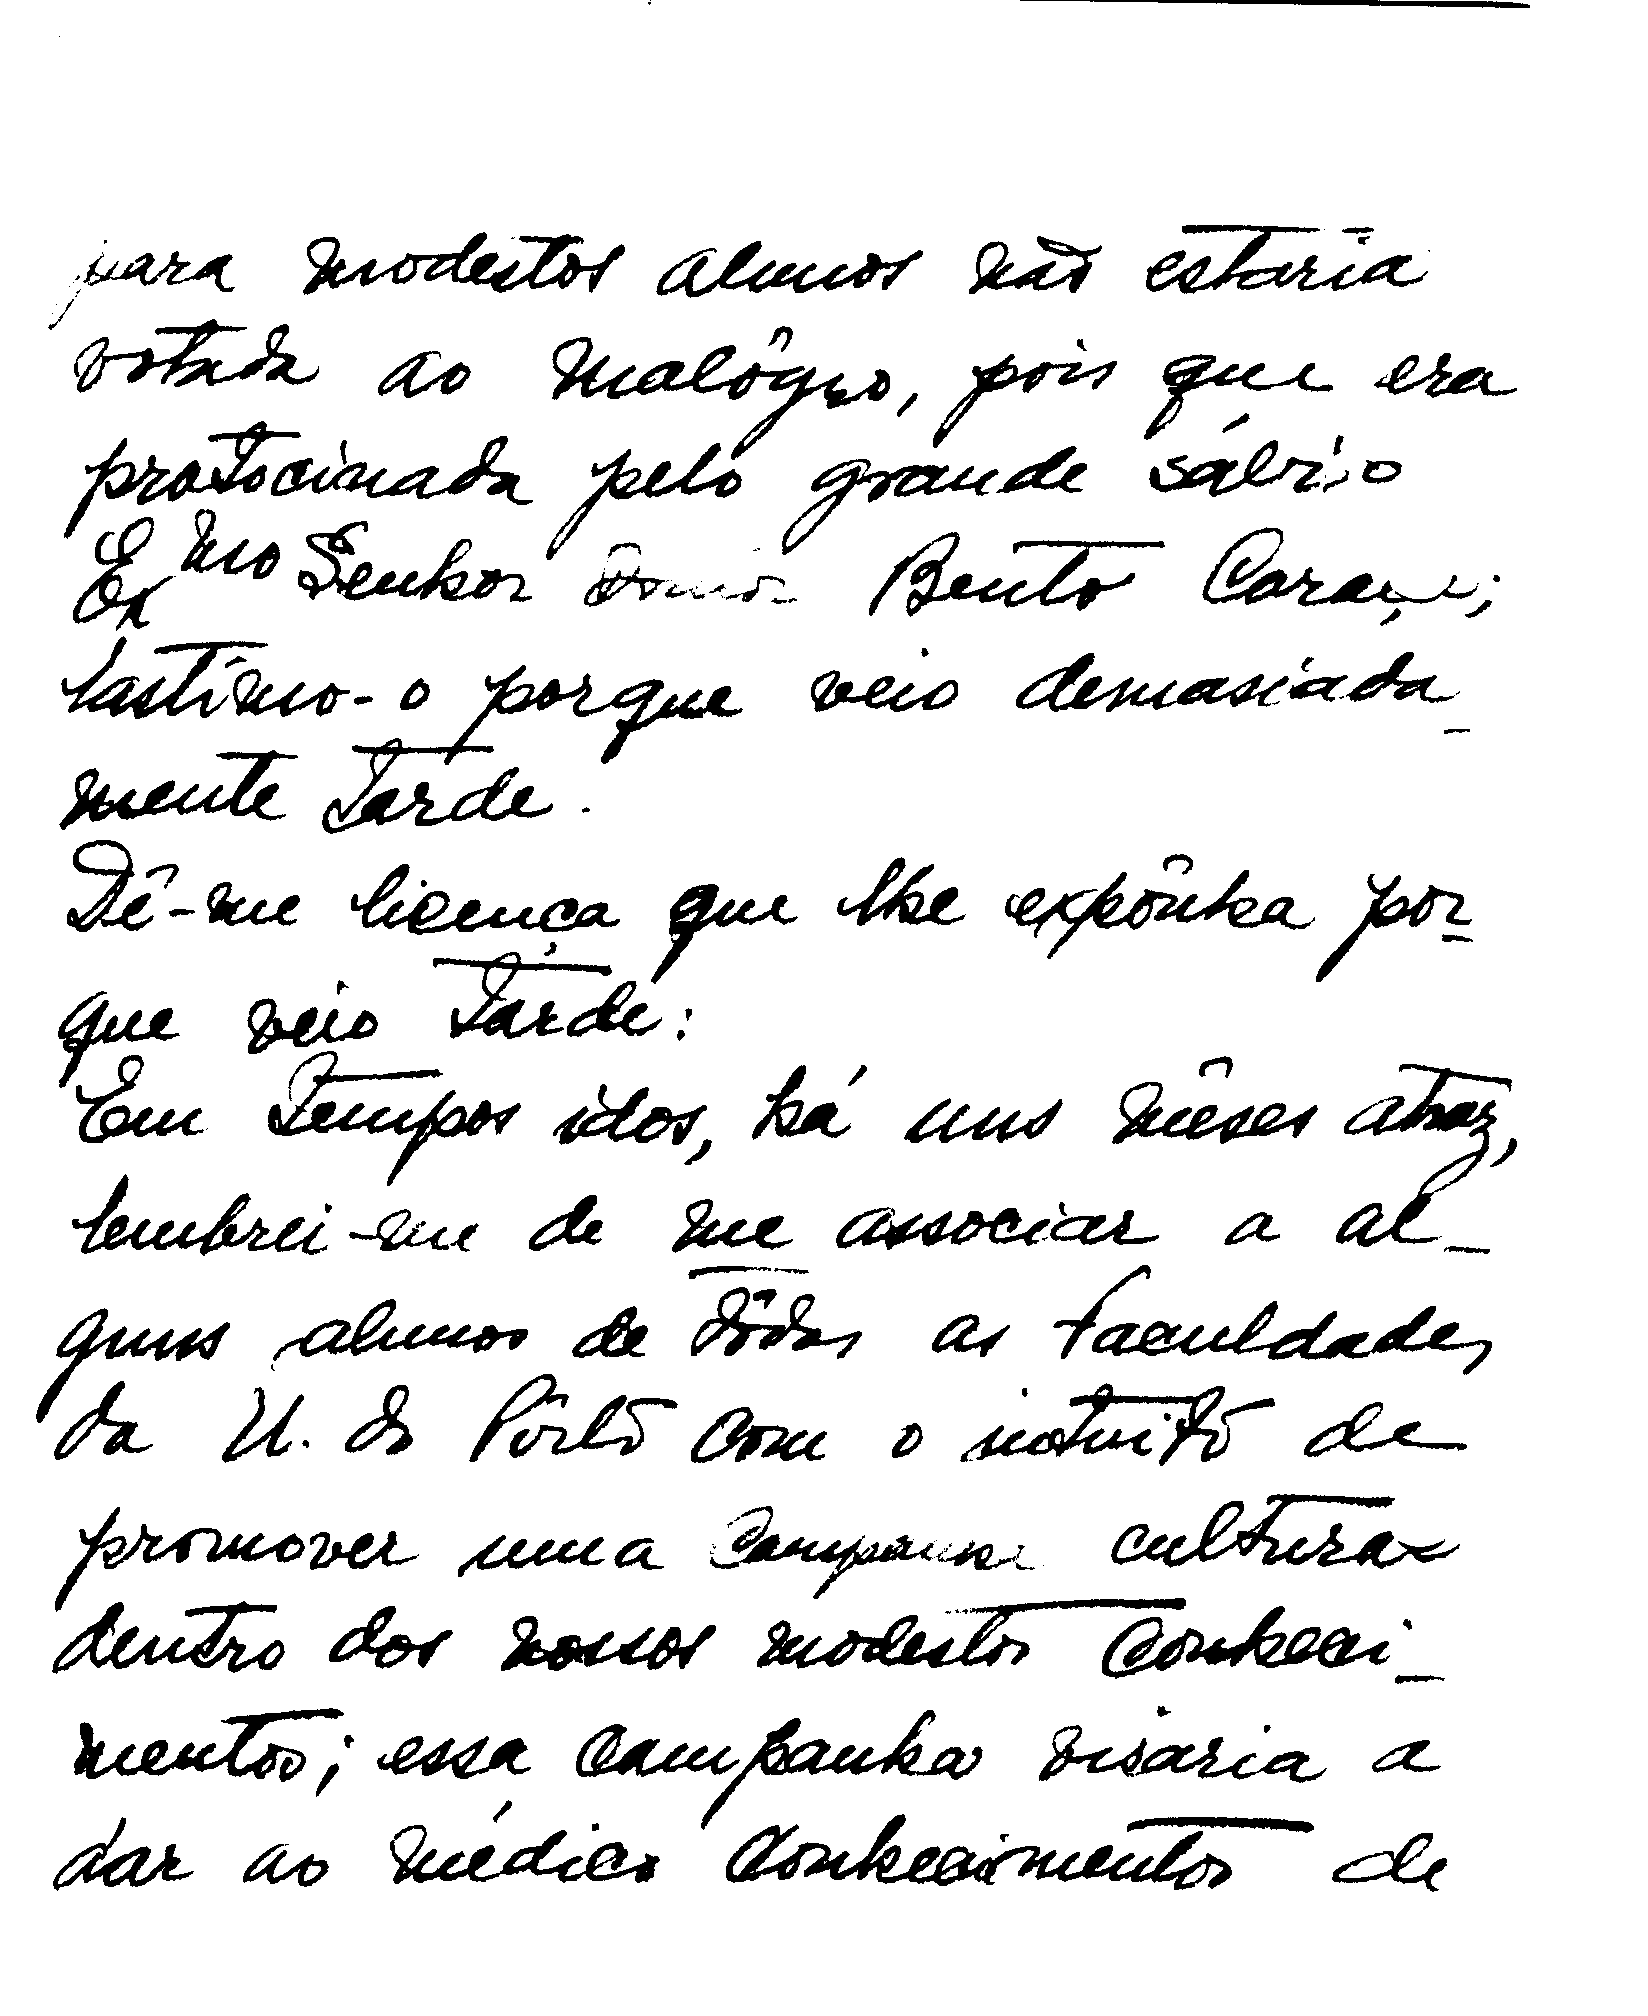 para modestos alunos não estaria
votada ao malôgro, pois que era
protocinada pelo grande sábio
Exmo Senhor Doutor Bento Caraça;
lastimo-o porque veio demasiada-
mente tarde.
Dê-me licença que lhe expônha por-
que veio tarde:
Em tempos idos, há uns mêses atraz,
lembrei-me de me associar a al-
guns alunos de tôdas as Faculdades
da U. do Pôrto com o intuito de
promover uma Campanha cultural
dentro dos nossos modestos conheci-
mentos; essa campanha visaria a
dar ao médico conhecimentos de